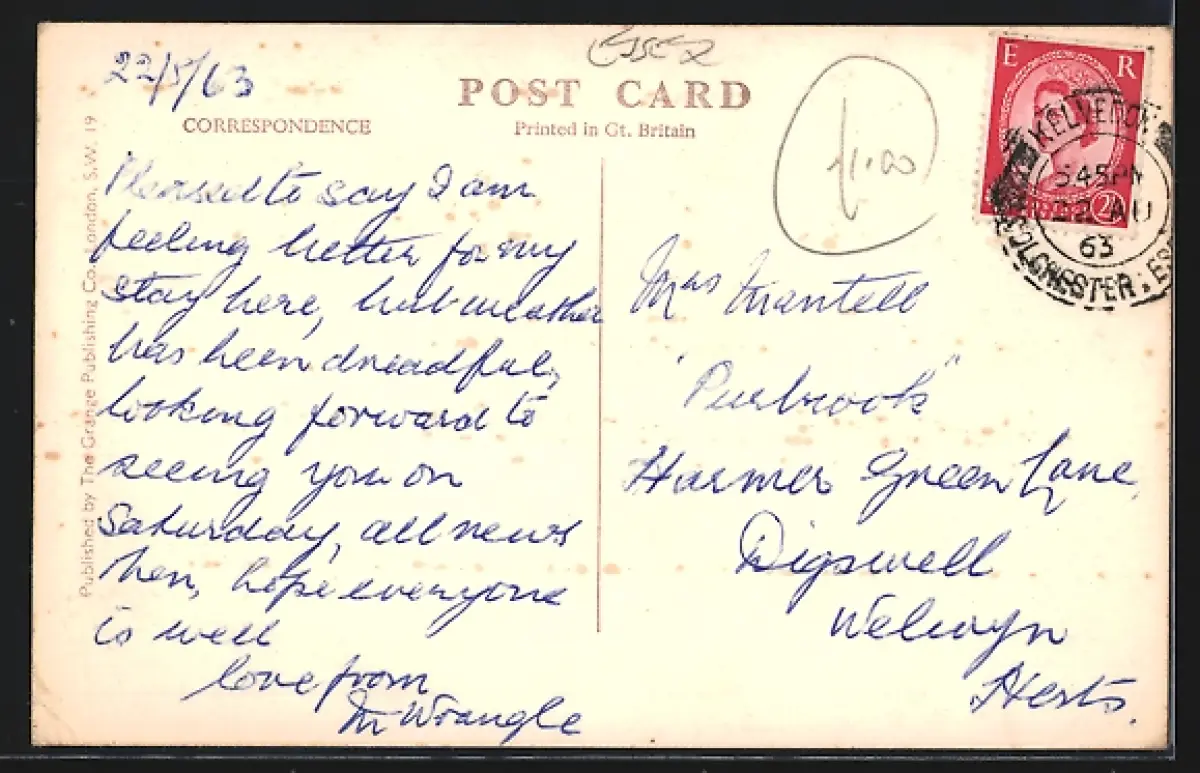 ESSEX
22/5/63
POST CARD
CORRESPONDENCE
Printed in Gt. Britain
£1.00
E R
2½
KELVEDON
5 45 PM
22 AU
63
COLCHESTER. ES
Pleased to say I am
feeling better for my
stay here, but weather
has been dreadful,
looking forward to
seeing you on
Saturday, all news
then, hope everyone
is well
love from
M Wrangle
Mrs Mantell
"Purbrook"
Harmer Green Lane,
Digswell
Welwyn
Herts.
Published by The Grange Publishing Co. London, S.W. 19